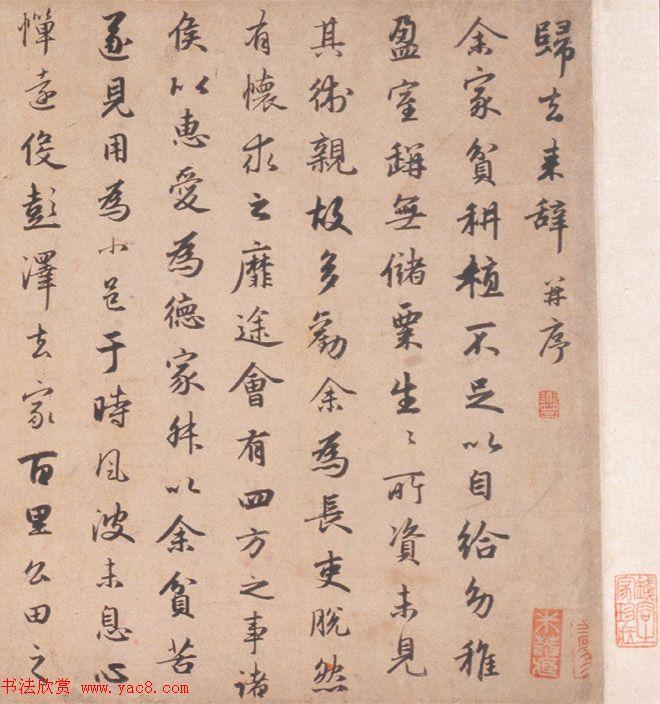 歸去来辞 并序
余家貧耕植不足以自給幼稚
盈室缾無儲粟生〻所資未見
其術親故多勸余為長吏脫然
有懷求之靡途會有四方之事諸
侯以惠愛為德家叔以余貧苦
遂見用為小邑于時風波未息心
憚遠役彭澤去家百里公田之
书法欣赏 www.yac8.com